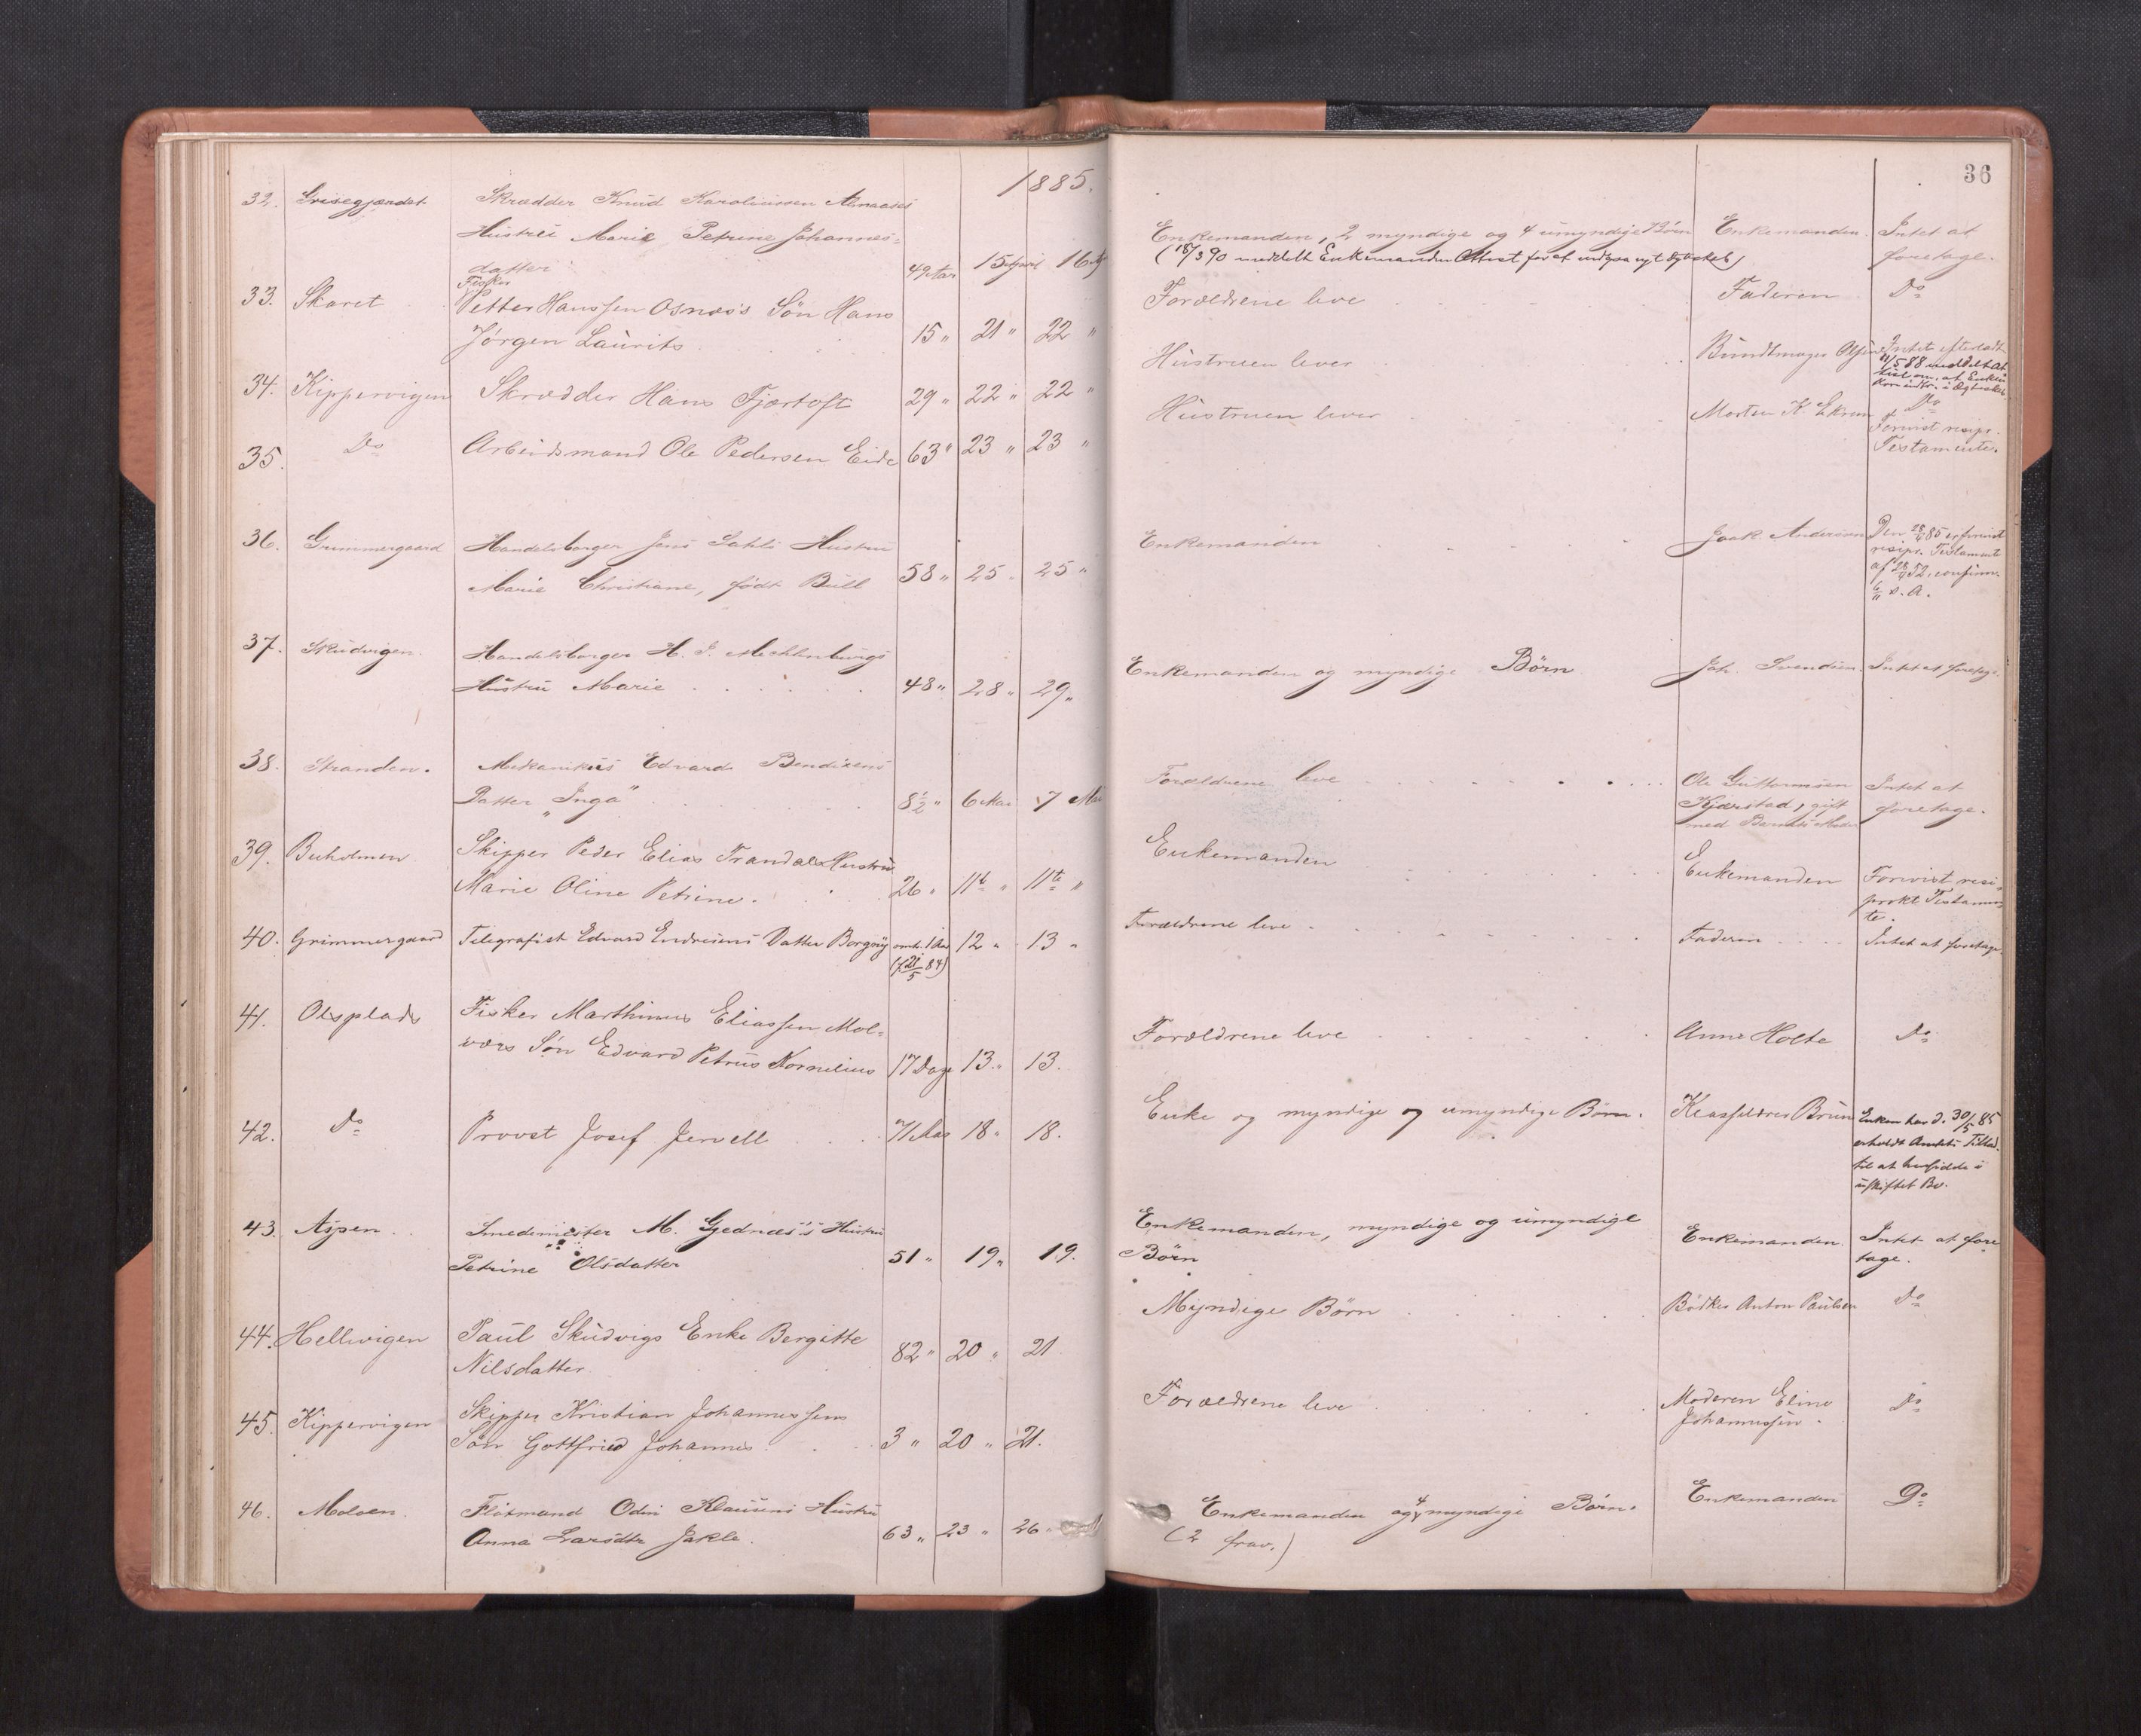 1885.
32. Grisegjændet Skrædder Knud Karoliussen Almaases
Hustru Marie Petrine Johannes-
datter 49 Aar 15 April 16 "
33. Skaret Fisker
Petter Hanssen Osnæs's Søn Hans
Jørgen Laurits 15 " 21 " 22 "
34. Kippervigen Skrædder Hans Fjærtoft 29 " 22 " 22 "
35. Do Arbeidsmand Ole Pedersen Eide 63 " 23 " 23 "
36. Grimmergaard Handelsborger Jens Dahls Hustru
Marie Christiane, født Bull 58 " 25 " 25 "
37. Skudvigen Handelsborger H. J. Mechlenburgs
Hustru Marie 48 " 28 " 29 "
38. Stranden. Mekanikus Edvard Bendixens
Datter "Inga" 8½ " 6 Mai 7 Mai
39. Buholmen Skipper Peder Elias Trandals Hustru
Marie Oline Petrine. 26 " 11te " 11te "
40. Grimmergaard Telegrafist Edvard Endresens Datter Borgny omtr. 1 Aar 12 " 13 "
(f. 21/5 84)
41. Olsplads Fisker Marthinus Eliassen Mol-
værs Søn Edvard Petrus Kornelius 17 Dage 13 " 13.
42. Do Provst Josef Jervell 71 Aar 18 " 18.
43. Aspen Smedemester M. Gjednæs's Hustru
Petrine Olsdatter 51 " 19 " 19.
44. Hellevigen Paul Skudvigs Enke Bergitte
Nilsdatter 82 " 20 " 21
45. Kippervigen Skipper Kristian Johannessens
Søn Gottfried Johannes 3 " 20 " 21.
46. Moloen. Flotmand Odin Klausens Hustru
Anna Larsdtr Jakle. 63 " 23 " 26
36
Enkemanden, 2 myndige og 4 umyndige Børn Enkemanden. Intet at
foretage.
(18/3 90 meddelt Enkemanden Attest for at indgaa nyt Ægteskab)
Forældrene leve Faderen Do
Hustruen lever Bundtmager Olsen Intet efterladt
11/5 88 meddelt At
test om, at Enken
kan indtr. i Ægteskab.
Hustruen lever Morten K. Ekren Do
Forevist resipr.
Testamente.
Enkemanden Jook Andersen Den 28/4 85 er forevist
resipr. Testamente
af 28/4 52, confirm.
6/11 s. A.
Enkemanden og myndige Børn Joh. Svendsen. Intet at foretage.
Forældrene leve Ole Guttormsen Intet at
Kjærstad, gift foretage.
med Barnets Moder
Enkemanden Enkemanden Forevist resi-
prokt Testamen-
te.
Forældrene leve Faderen Intet at foretage
Forældrene leve Anne Holte Do
Enke og myndige og umyndige Børn. Klasfeldres Brun Enken har d. 30/5 85
erholdt Amtets Tillad.
til at hensidde i
uskiftet Bo.
Enkemanden, myndige og umyndige Enkemanden. Intet at fore
Børn tage.
Myndige Børn Bødker Anton Paulsen Do
Forældrene leve Moderen Eline Do
Johannessen.
Enkemanden og 4 myndige Børn. Enkemanden Do
(2 frav.)